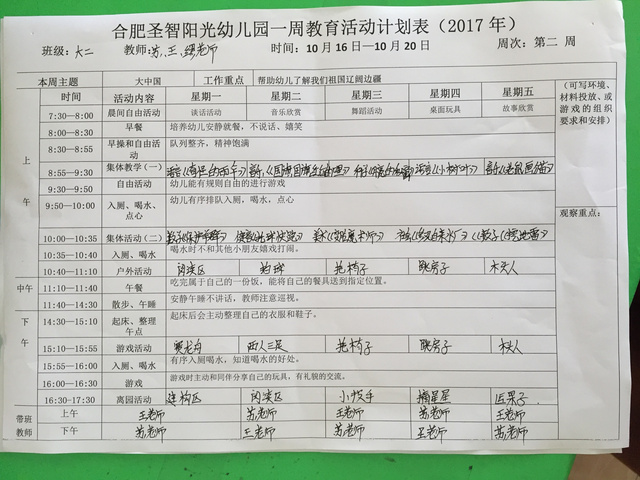 合肥圣智阳光幼儿园一周教育活动计划表（2017 年）
班级：大二 教师：苏、王、 老师 时间：10 月 16 日—10 月 20 日 周次：第二 周
本周主题 大中国 工作重点 帮助幼儿了解我们祖国辽阔边疆
时间 活动内容 星期一 星期二 星期三 星期四 星期五 （可写环境、材料投放、或游戏的组织要求和安排）
7:30—8:00 晨间自由活动 谈话活动 音乐欣赏 舞蹈活动 桌面玩具 故事欣赏
上午
8:00—8:30 早餐 培养幼儿安静就餐，不说话、嬉笑
8:30—8:55 早操和自由活动 队列整齐，精神饱满
8:55—9:30 集体教学（一） 《小树叶》
9:30—9:50 自由活动 幼儿能有规则自由的进行游戏
9:50—10:00 入厕、喝水、点心 幼儿有序排队入厕，喝水，点心
观察重点：
10:00—10:35 集体活动（二）
10:35—10:40 入厕、喝水 喝水时不和其他小朋友嬉戏打闹。
10:40—11:10 户外活动 阅读区 拍球 抢椅子 跳房子 木头人
中午 11:10—11:40 午餐 吃完属于自己的一份饭，能将自己的餐具送到指定位置。
11:40—14:30 散步、午睡 安静午睡不讲话，教师注意巡视。
下午 14:30—15:10 起床、整理午点 起床后会主动整理自己的衣服和鞋子。
15:10—15:55 游戏活动 赛龙舟 两人三足 抢椅子 跳房子 木头人
15:55—16:00 入厕、喝水 有序入厕喝水，知道喝水的好处。
16:00—16:30 游戏 游戏时主动和同伴分享自己的玩具，有礼貌的交流。
16:30-17:30 离园活动 建构区 阅读区 小牧手 摘星星 运果子
带班教师 上午 王老师 苏老师 王老师 苏老师 王老师
下午 苏老师 王老师 苏老师 王老师 苏老师